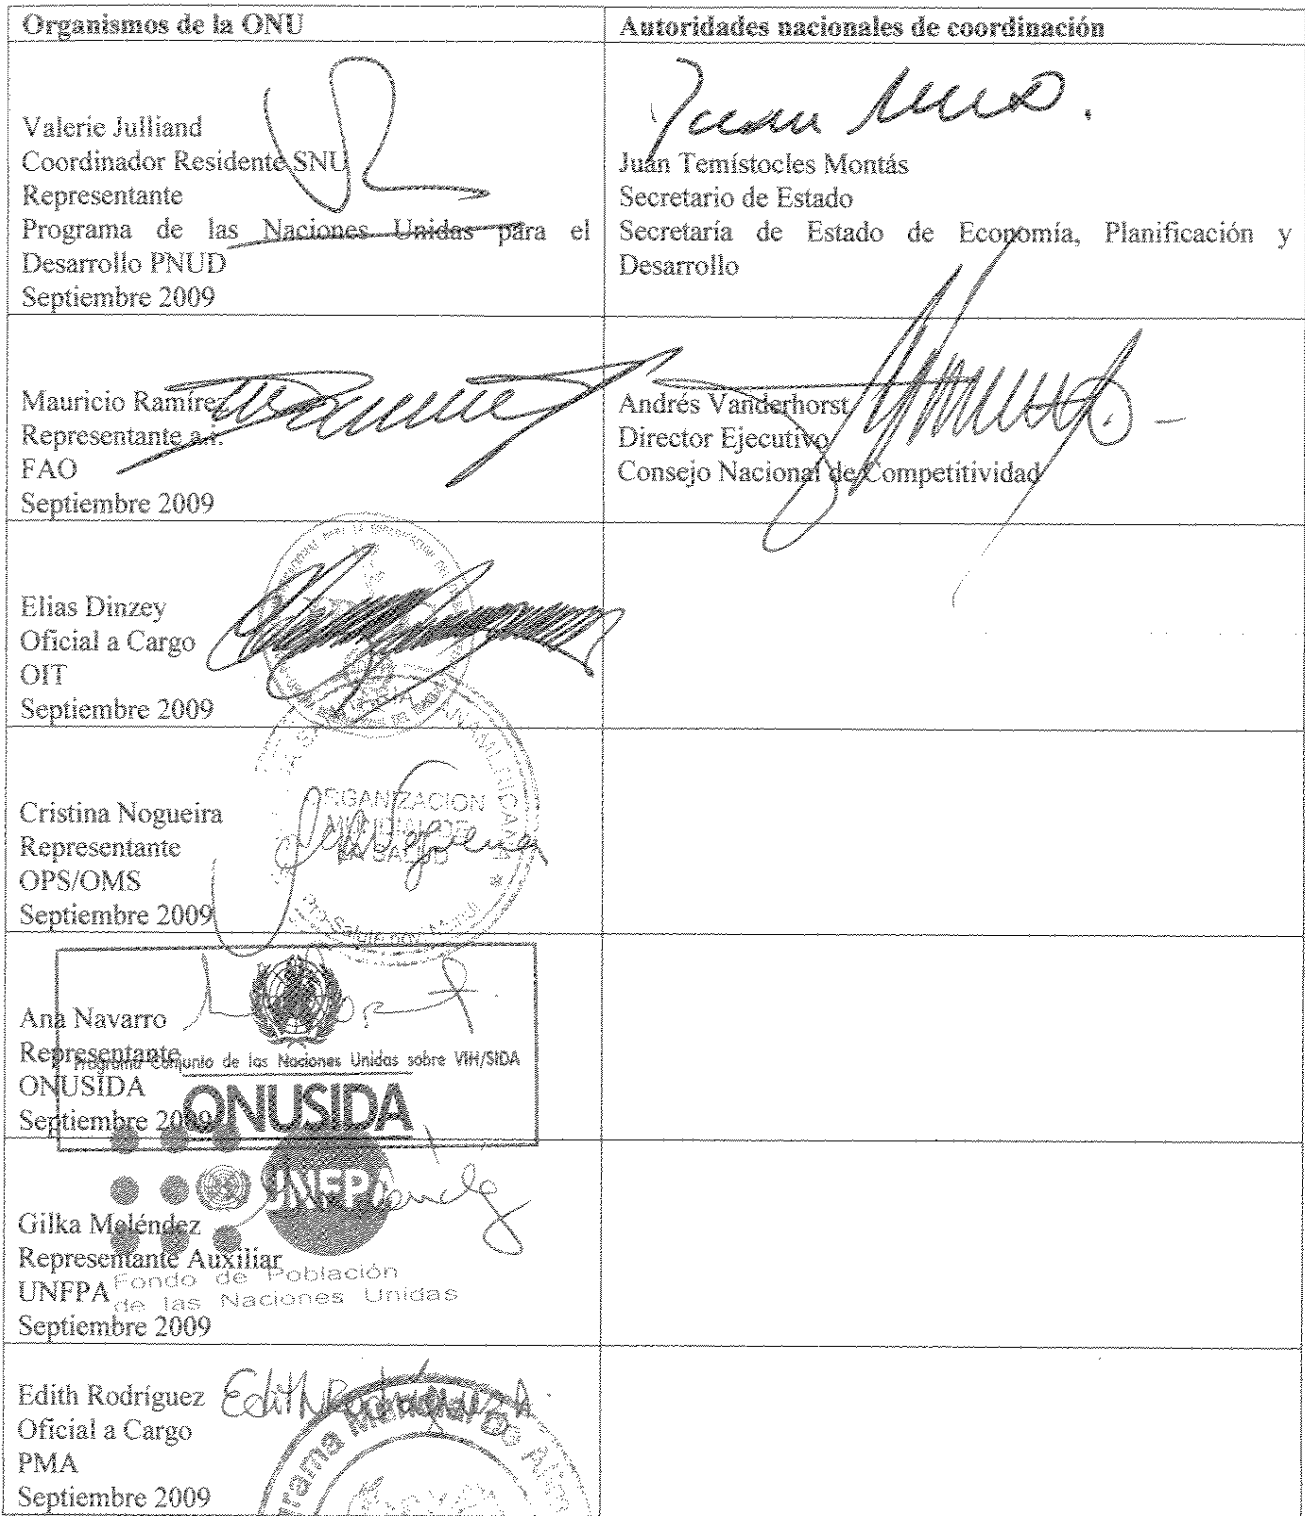 Organismos de la ONU
Autoridades nacionales de coordinación
Valerie Julliand
Coordinador Residente SNU
Representante
Programa de las Naciones Unidas para el
Desarrollo PNUD
Septiembre 2009
Juan Temístocles Montás
Secretario de Estado
Secretaría de Estado de Economía, Planificación y
Desarrollo
Mauricio Ramírez
Representante a.i.
FAO
Septiembre 2009
Andrés Vanderhorst
Director Ejecutivo
Consejo Nacional de Competitividad
Elias Dinzey
Oficial a Cargo
OIT
Septiembre 2009
Cristina Nogueira
Representante
OPS/OMS
Septiembre 2009
ORGANIZACION
MUNDIAL DE
LA SALUD
SANITARIA PANAMERICANA
Pro Salute Novi Mundi
Ana Navarro
Representante
ONUSIDA
Septiembre 2009
Programa Conjunto de las Naciones Unidas sobre VIH/SIDA
ONUSIDA
UNFPA
Gilka Meléndez
Representante Auxiliar
UNFPA
Septiembre 2009
Fondo de Población
de las Naciones Unidas
Edith Rodríguez
Oficial a Cargo
PMA
Septiembre 2009
Edith Rodríguez
grama Mundial De Alim